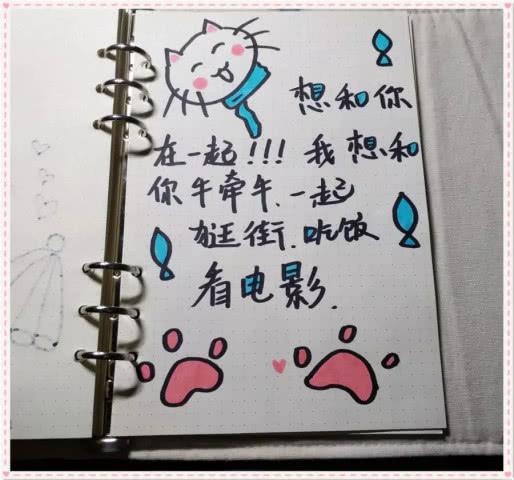 想和你
在一起!!! 我想和
你牛牵牛、一起
逛街.吃饭
看电影.